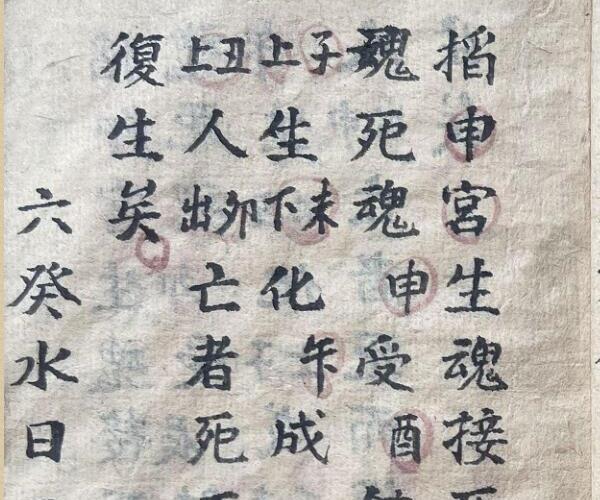 掐申宮生魂接
魂死魂申受酉
子上生未下化午成
丑上人卯出亡者死
復生矣
六癸水日